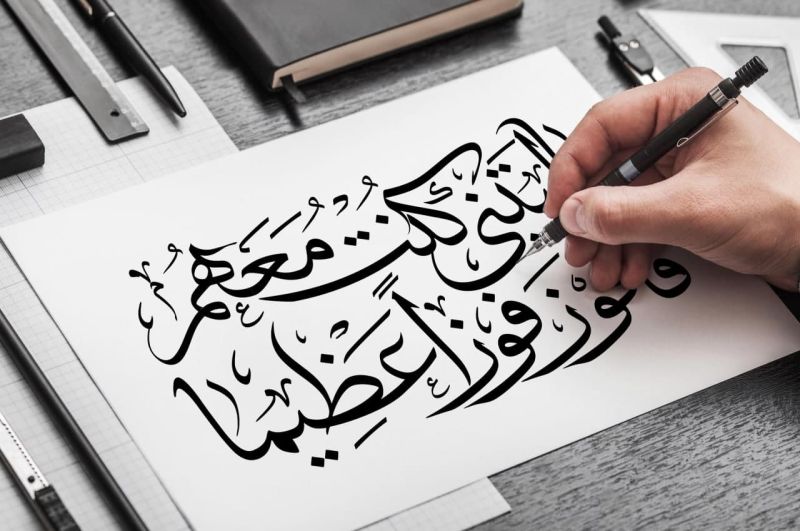 ليتني كنت معهم
فأفوز فوزاً عظيما